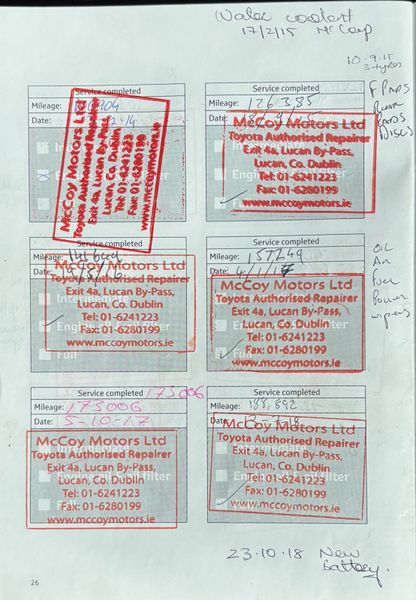 Water coolant
17/2/15 McCoy
10-9-15
3 tyres
Service completed
Mileage:
Date:
McCoy Motors Ltd
Toyota Authorised Repairer
Exit 4a, Lucan By-Pass,
Lucan, Co. Dublin
Tel: 01-6241223
Fax: 01-6280199
www.mccoymotors.ie
Service completed
Mileage: 126385
Date:
McCoy Motors Ltd
Toyota Authorised Repairer
Exit 4a, Lucan By-Pass,
Lucan, Co. Dublin
Tel: 01-6241223
Fax: 01-6280199
www.mccoymotors.ie
F Pads
Rear
Pads
Discs
Service completed
Mileage: 141649
Date:
McCoy Motors Ltd
Toyota Authorised Repairer
Exit 4a, Lucan By-Pass,
Lucan, Co. Dublin
Tel: 01-6241223
Fax: 01-6280199
www.mccoymotors.ie
Full
Service completed
Mileage: 157249
Date: 4/1/17
McCoy Motors Ltd
Toyota Authorised Repairer
Exit 4a, Lucan By-Pass,
Lucan, Co. Dublin
Tel: 01-6241223
Fax: 01-6280199
www.mccoymotors.ie
OIL
Air
Fuel
Pollen
wipers
Service completed 173006
Mileage: 173006
Date: 5-10-17
McCoy Motors Ltd
Toyota Authorised Repairer
Exit 4a, Lucan By-Pass,
Lucan, Co. Dublin
Tel: 01-6241223
Fax: 01-6280199
www.mccoymotors.ie
Service completed
Mileage: 188,892
Date:
McCoy Motors Ltd
Toyota Authorised Repairer
Exit 4a, Lucan By-Pass,
Lucan, Co. Dublin
Tel: 01-6241223
Fax: 01-6280199
www.mccoymotors.ie
23-10-18 New
Battery.
26